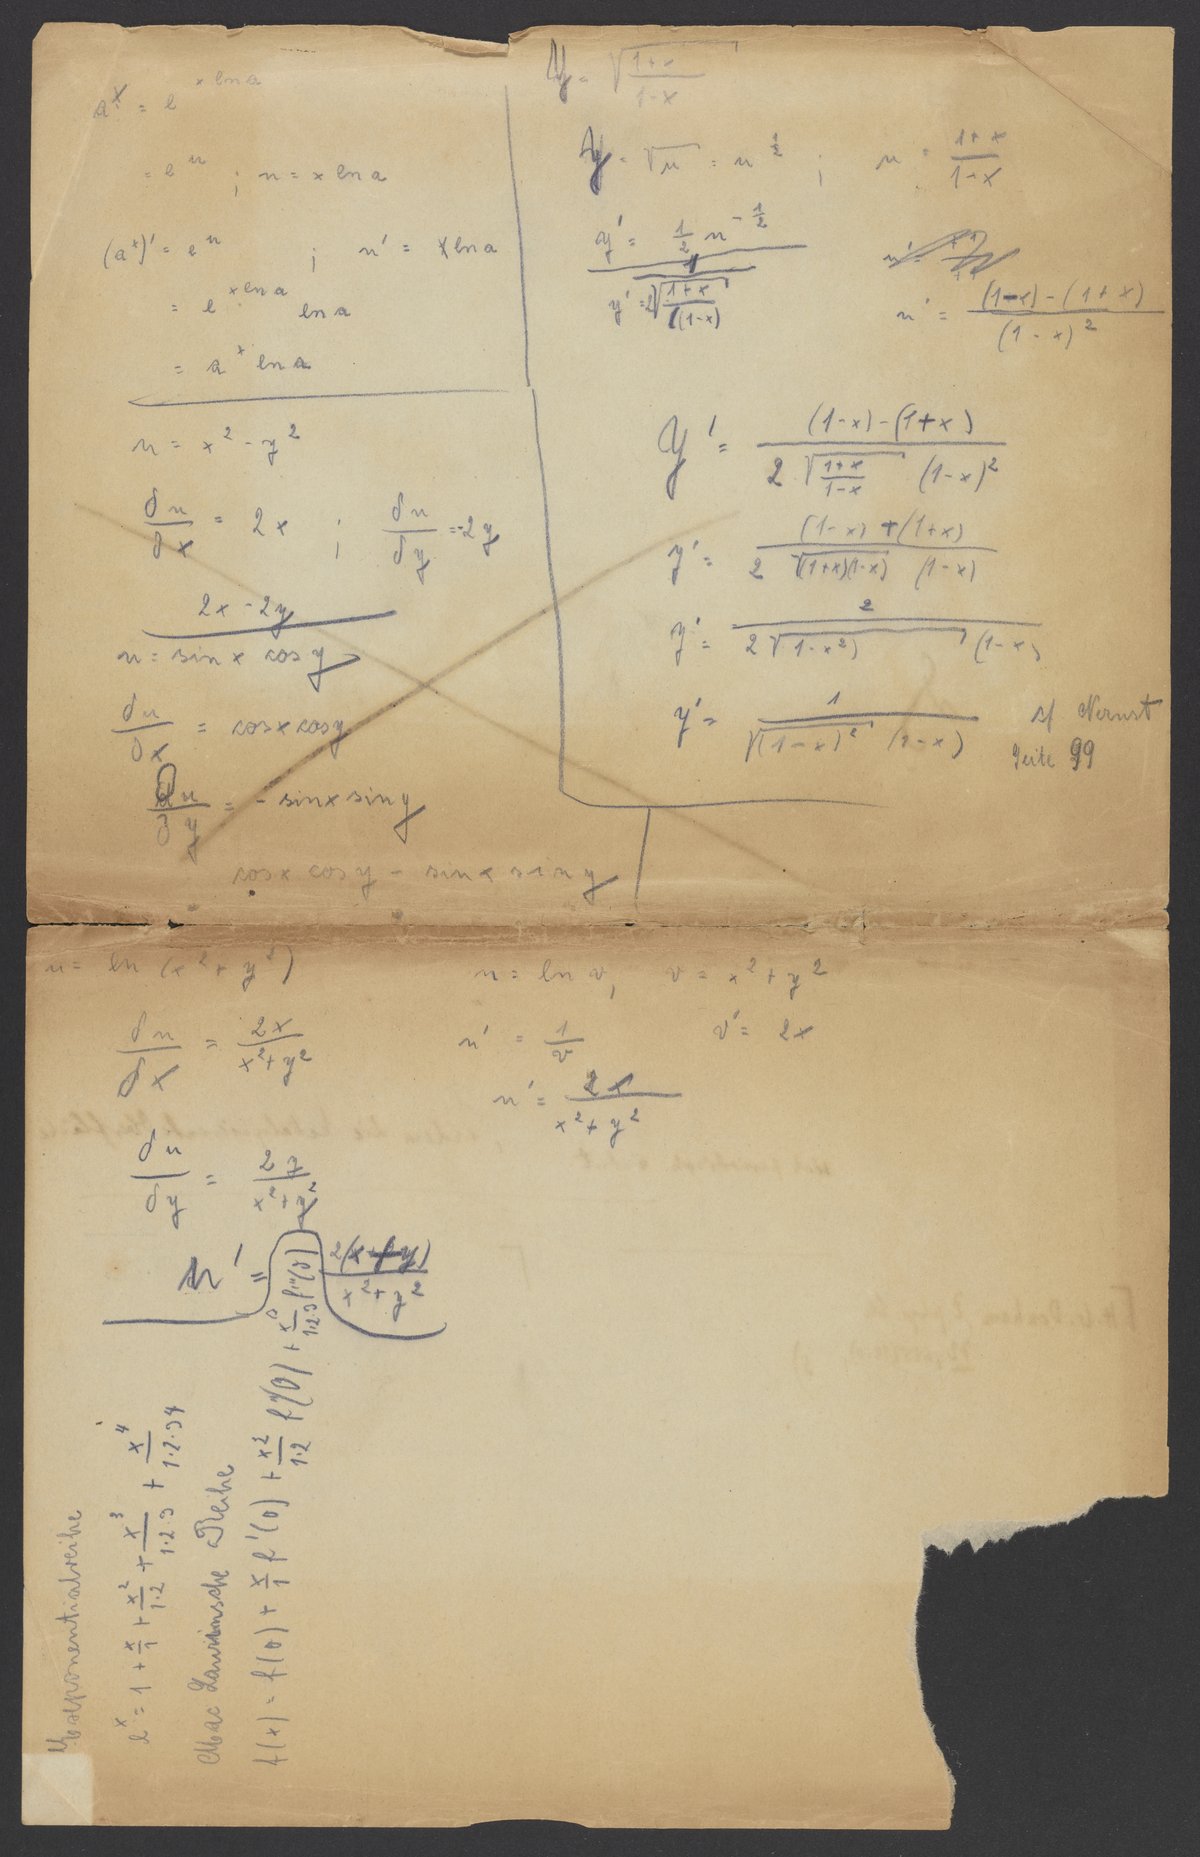 aˣ = e^{x ln a}
= eᵘ ; u = x ln a
(aˣ)' = eᵘ ; u' = x ln a
= e^{x ln a} ln a
= aˣ ln a
u = x² - y²
δu/δx = 2x ; δu/δy = -2y
2x - 2y
u = sin x cos y
δu/δx = cos x cos y
∂u/∂y = - sin x sin y
cos x cos y - sin x sin y
y = √((1+x)/(1-x))
y = √u = u^{1/2} ; u = (1+x)/(1-x)
y' = 1/2 u^{-1/2}
y' = 1/(2√((1+x)/(1-x)))
u' = ((1-x)-(1+x))/(1-x)²
y' = ((1-x)-(1+x))/(2 √((1+x)/(1-x)) (1-x)²)
y' = ((1-x)+(1+x))/(2 √((1+x)(1-x)) (1-x))
y' = 2/(2√(1-x²) (1-x))
y' = 1/(√((1-x)²) (1-x)) s/ Nernst
Seite 99
u = ln (x² + y²)
δu/δx = 2x/(x²+y²)
δu/δy = 2y/(x²+y²)
u' = 2(x+y)/(x²+y²)
u = ln v, v = x² + y²
u' = 1/v v' = 2x
u' = 2x/(x²+y²)
Exponentialreihe
eˣ = 1 + x/1 + x²/1·2 + x³/1·2·3 + x⁴/1·2·3 4
Mac Laurinsche Reihe
f(x) = f(0) + x/1 f'(0) + x²/1·2 f''(0) + x³/1·2·3 f'''(0)